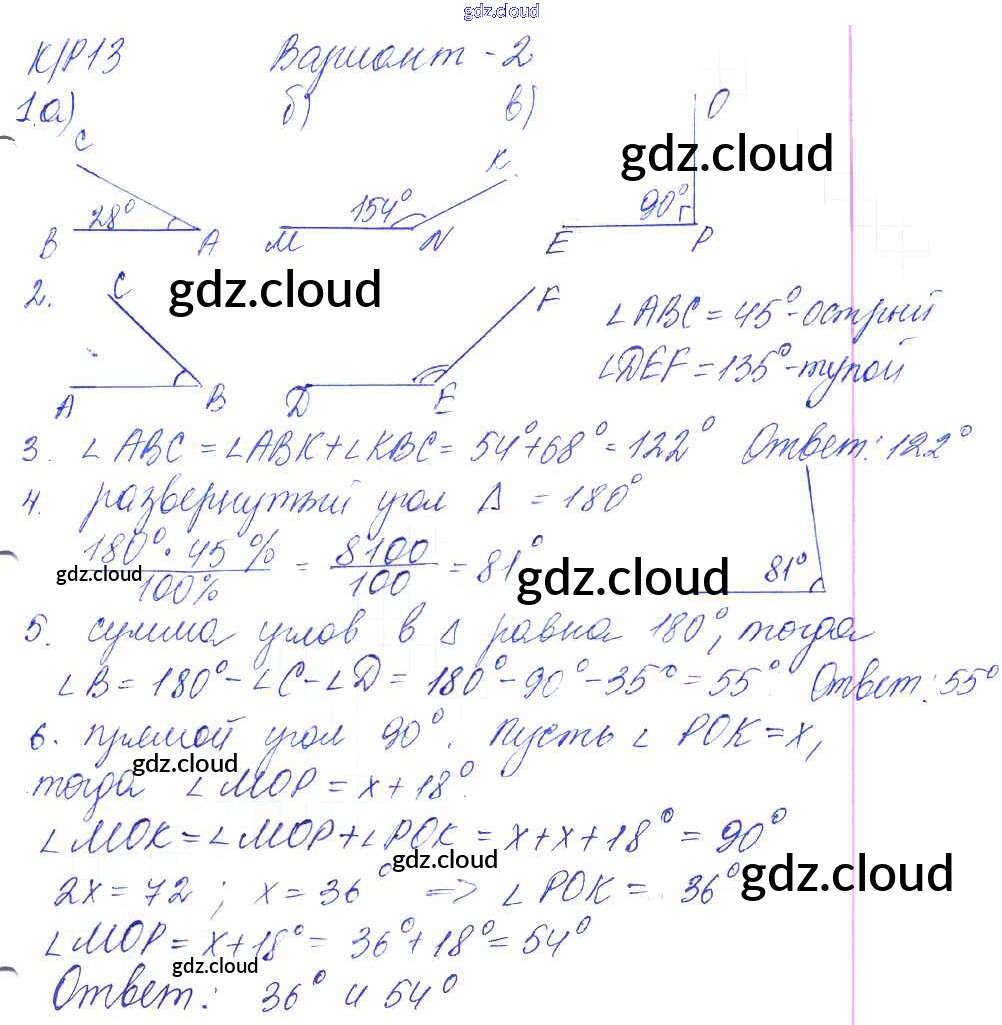 gdz.cloud
К/Р13 Вариант - 2
1.а) б) в)
C K O
gdz.cloud
28° 154° 90°
B A M N E P
2. C F gdz.cloud
∠ABC = 45° - острый
∠DEF = 135° - тупой
A B D E
3. ∠ABC = ∠ABK + ∠KBC = 54° + 68° = 122° Ответ: 122°
4. развернутый угол Δ = 180°
180° · 45 % / 100% = 8100 / 100 = 81° 81°
gdz.cloud gdz.cloud
5. сумма углов в Δ равна 180°, тогда
∠B = 180° - ∠C - ∠D = 180° - 90° - 35° = 55° Ответ: 55°
6. прямой угол 90°. Пусть ∠POK = x,
gdz.cloud
тогда ∠MOP = x + 18°.
∠MOK = ∠MOP + ∠POK = x + x + 18° = 90°
gdz.cloud
2x = 72 ; x = 36° => ∠POK = 36°
gdz.cloud
∠MOP = x + 18° = 36° + 18° = 54°
gdz.cloud
Ответ: 36° и 54°